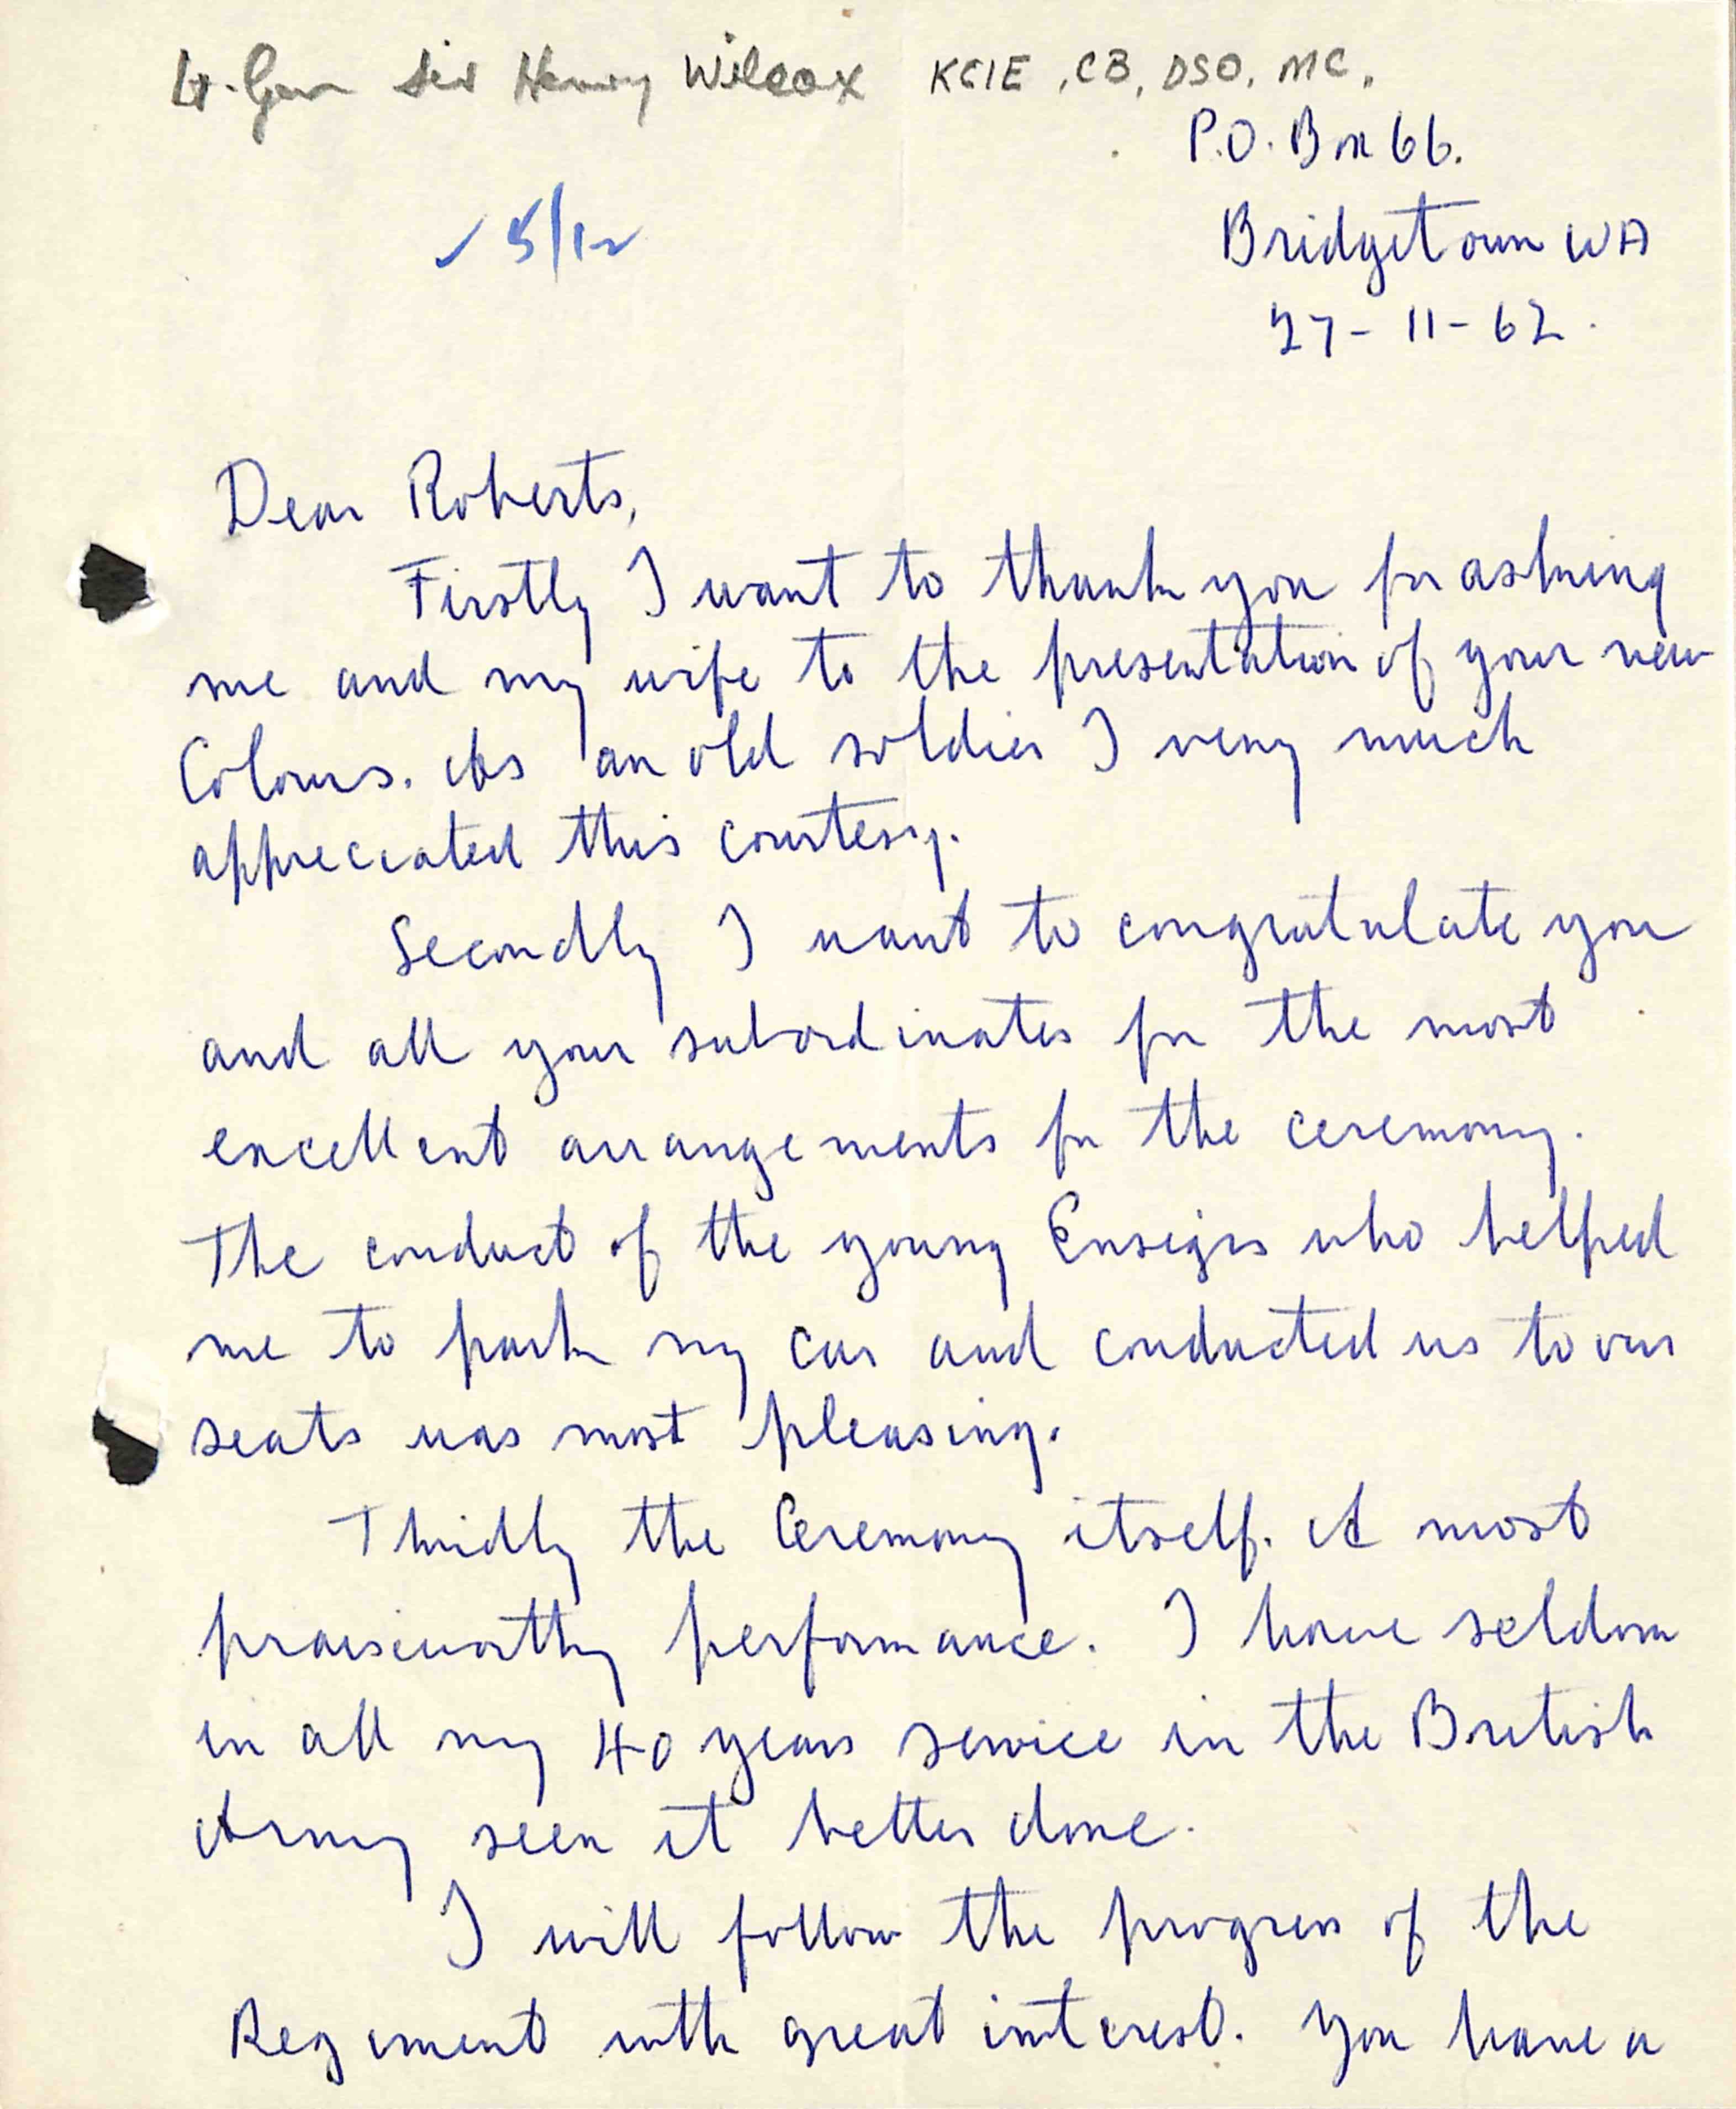 Lt. Gen Sir Henry Wilcox KCIE, CB, DSO, MC,
P.O. Box 66.
✓ 5/12
Bridgetown WA
27-11-62.
Dear Roberts,
Firstly I want to thank you for asking
me and my wife to the presentation of your new
Colours. As an old soldier I very much
appreciated this courtesy.
Secondly I want to congratulate you
and all your subordinates for the most
excellent arrangements for the ceremony.
The conduct of the young Ensigns who helped
me to park my car and conducted us to our
seats was most pleasing.
Thirdly the Ceremony itself. A most
praiseworthy performance. I have seldom
in all my 40 years service in the British
Army seen it better done.
I will follow the progress of the
Regiment with great interest. You have a